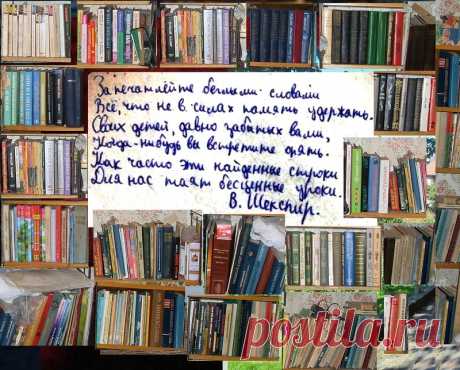 Запечатлейте беглыми словами
Всё, что не в силах память удержать.
Своих детей, давно забытых вами,
Когда-нибудь вы встретите опять.
Как часто эти найденные строки
Для нас таят бесценные уроки.
В. Шекспир.
postila.ru